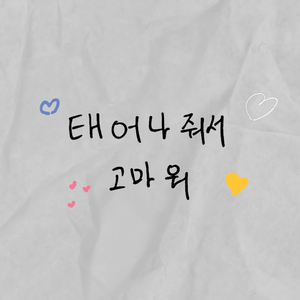 태어나줘서
고마워